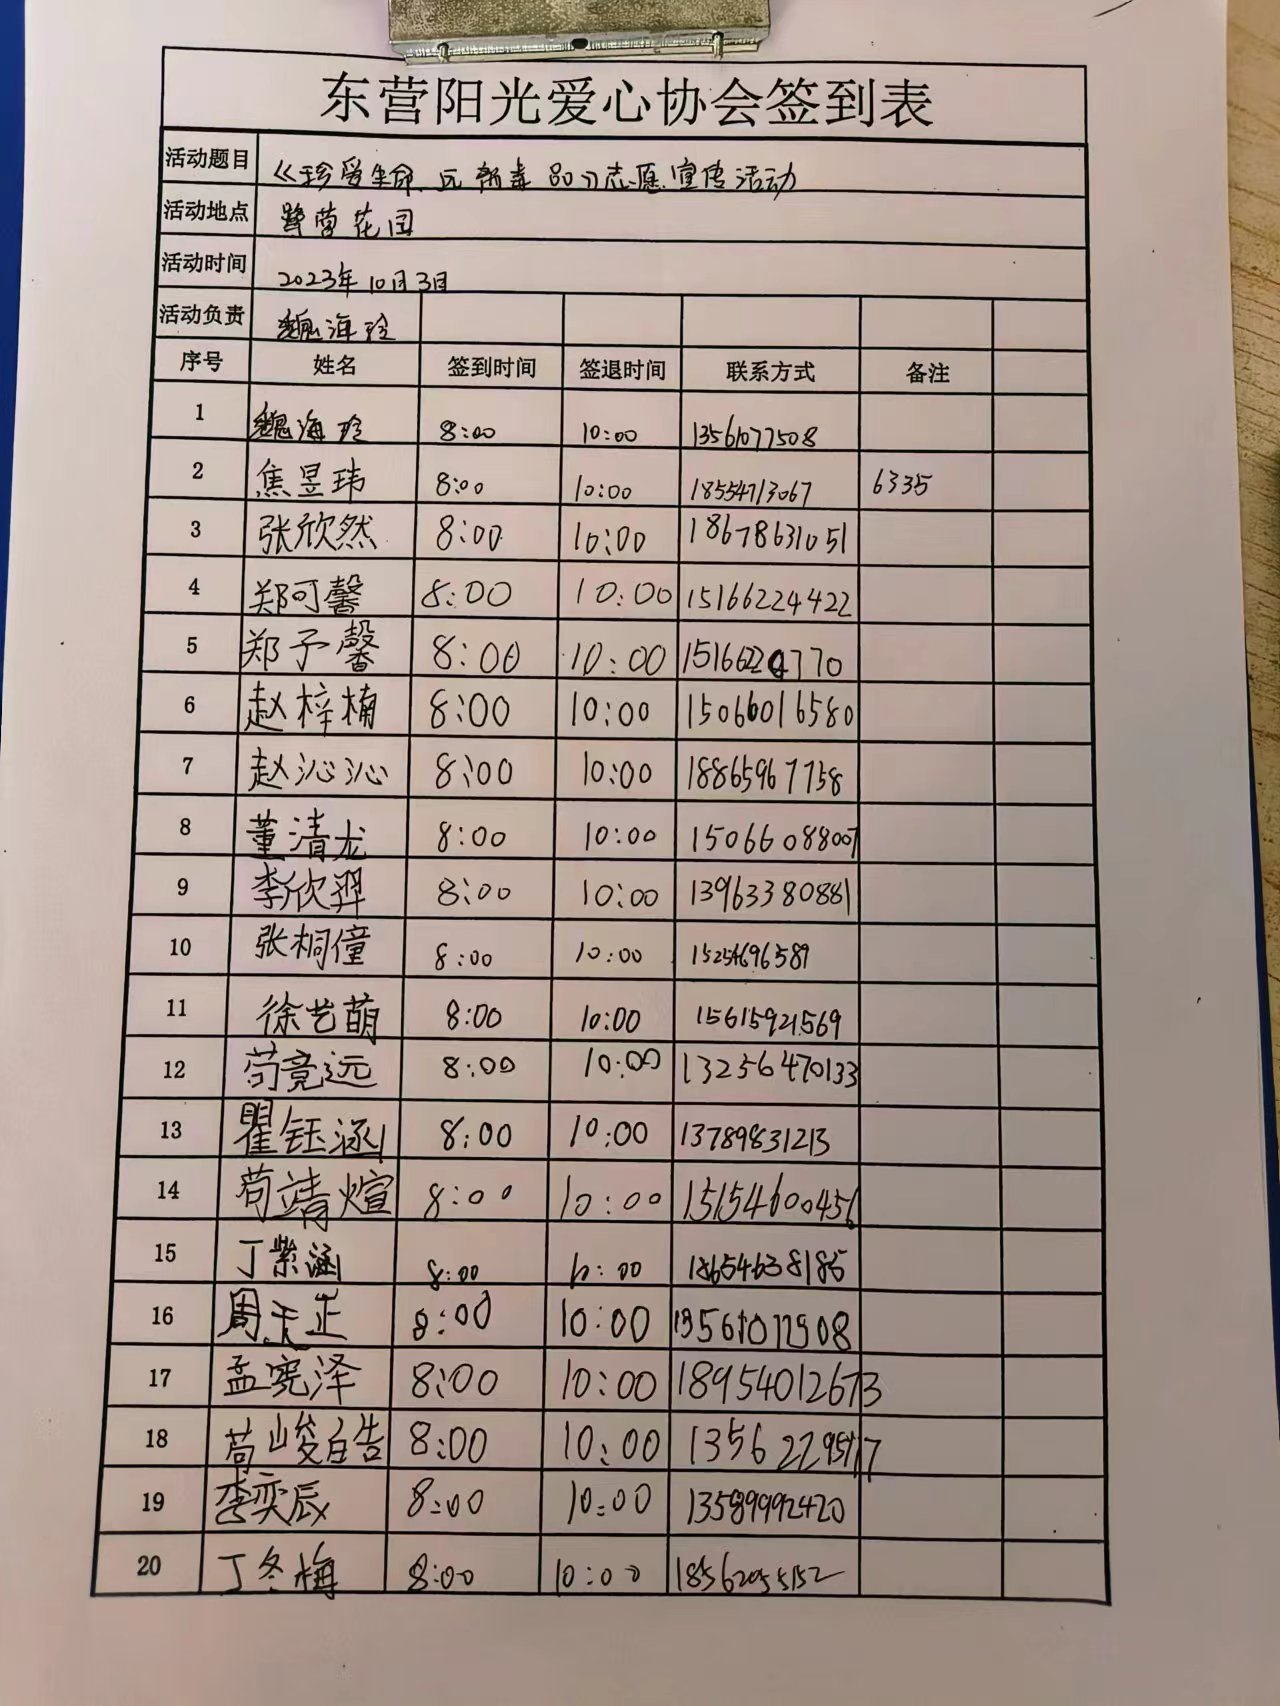 东营阳光爱心协会签到表
活动题目 《珍爱生命、远离毒品》志愿宣传活动
活动地点 营花园
活动时间 2023年10月3日
活动负责 魏海玲
序号 姓名 签到时间 签退时间 联系方式 备注
1 魏海玲 8:00 10:00 13561077508
2 焦昱玮 8:00 10:00 18554713067 6335
3 张欣然 8:00 10:00 18678631051
4 郑可馨 8:00 10:00 15166224422
5 郑予馨 8:00 10:00
6 赵梓楠 8:00 10:00 15066016580
7 赵沁沁 8:00 10:00 18865967758
8 董清龙 8:00 10:00 15066088007
9 李欣羿 8:00 10:00 13963380881
10 张桐僮 8:00 10:00 15254696589
11 徐艺萌 8:00 10:00 15615921569
12 苟竟远 8:00 10:00 13256470133
13 瞿钰涵 8:00 10:00 13789831213
14 苟靖煊 8:00 10:00 15154600456
15 丁紫涵 8:00 10:00 18654638185
16 周天正 8:00 10:00
17 孟宪泽 8:00 10:00 18954012673
18 苟峻皓 8:00 10:00
19 李奕辰 8:00 10:00 13589992420
20 丁冬梅 8:00 10:00 18562055152